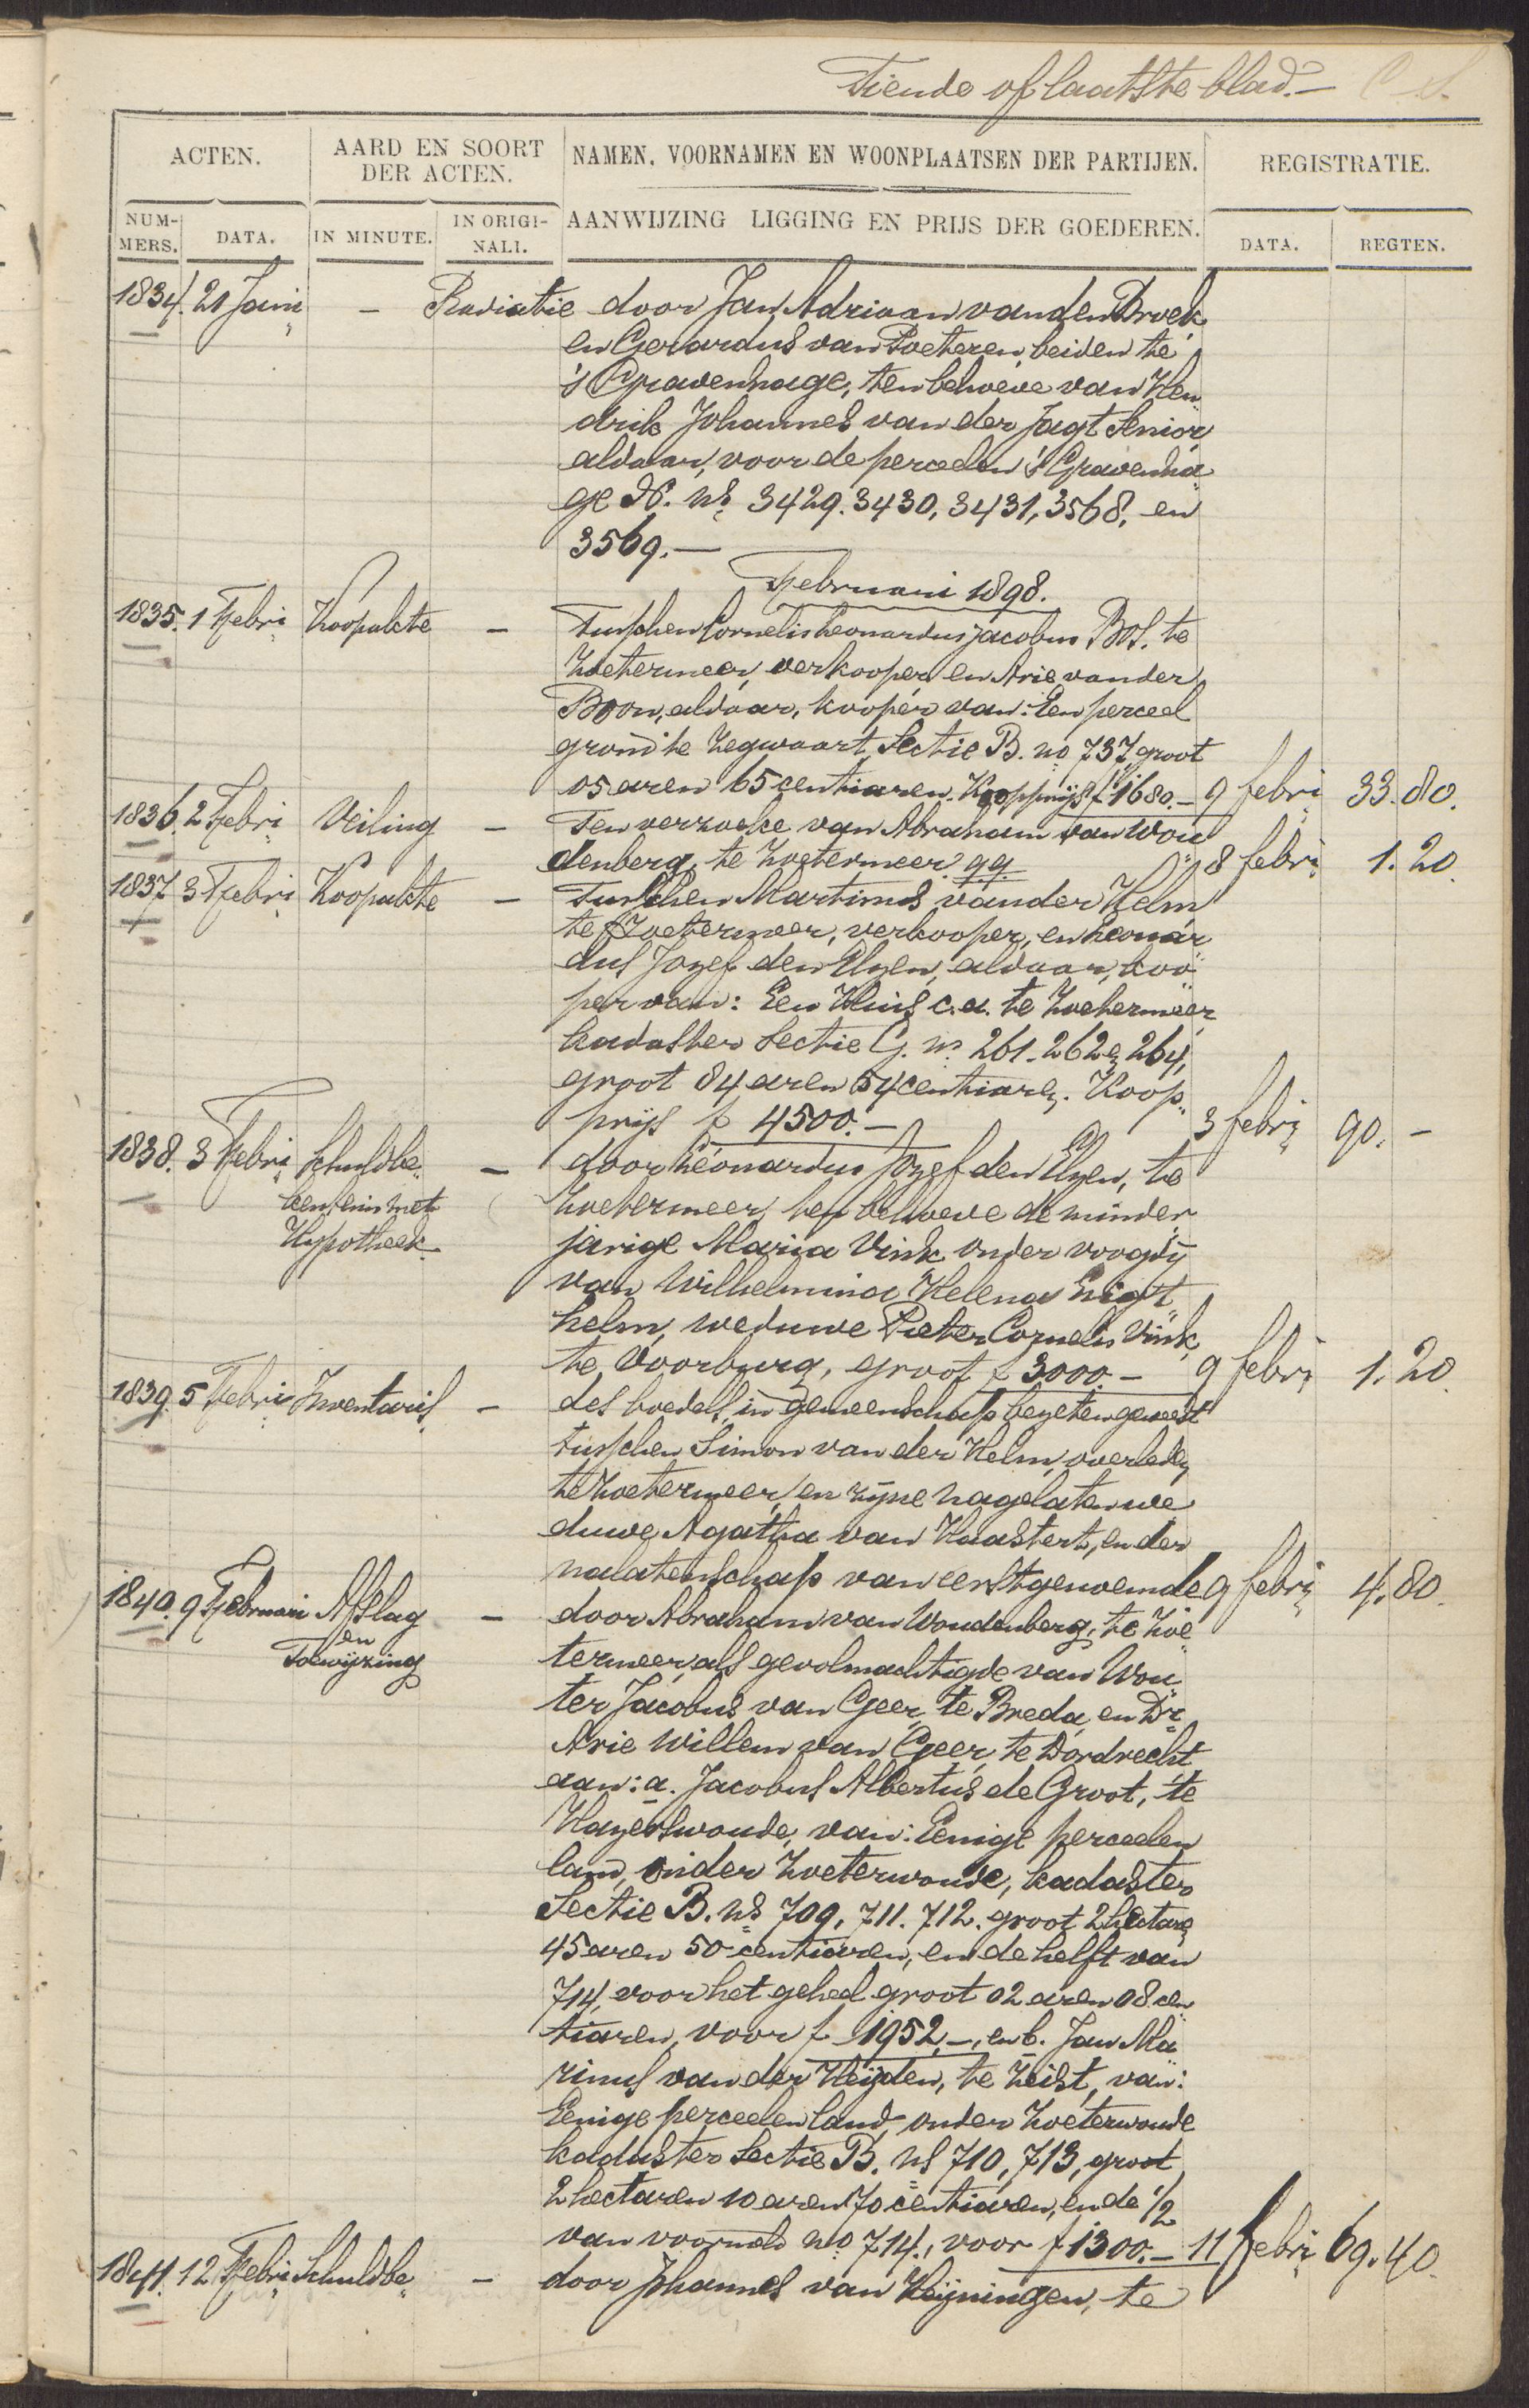 Tiende of laatste blad.—
ACTEN.
AARD EN SOORT DER ACTEN.
NAMEN, VOORNAMEN EN WOONPLAATSEN DER PARTIJEN.
REGISTRATIE.
NUM-MERS.
DATA.
IN MINUTE.
IN ORIGI-NALI.
AANWIJZING LIGGING EN PRIJS DER GOEDEREN.
DATA.
REGTEN.
1834. 21 Jani — Radiatie door Jan Adriaan van den Broek
en Gerardus van Poeteren, beiden te
's Gravenhage, ten behoeve van Hen
drik Johannes van der Jagt Senior,
aldaar, voor de perceelen 's Gravenha
ge N. ns 3429. 3430, 3431, 3568, en
3569.—
Februari 1898.
1835. 1 Febri Koopakte — Tusschen Cornelis Leonardus Jacobus Bos, te
Zoetermeer, verkooper en Arie van der
Boon, aldaar, kooper van: Een perceel
grond te Zegwaart, Sectie B. no 737, groot
05 aren 65 centiaren. Koopprijs f 1680.— 9 febri 33.80.
1836. 2 Febri Veiling — Ten verzoeke van Abraham van Wou
denberg, te Zoetermeer qq. 8 febri 1.20.
1837 3 Febri Koopakte — Tusschen Martinus van der Helm
te Zoetermeer, verkooper, en Leonar
dus Jozef den Elzen, aldaar, koo
per van: Een Huis c.a. te Zoetermeer
kadaster Sectie G. ns 261. 262 en 264,
groot 84 aren 54 centiaren. Koop
prijs f 4500.— 3 febri 90.—
1838. 3 Febri Schuldbe — door Leonardus Jozef den Elzen, te
kentenis met Zoetermeer, ten behoeve de minder
Hypotheek jarige Maria Vink onder voogdij
van Wilhelmina Helena Enigt
helm, weduwe Pieter Cornelis Vink,
te Voorburg, groot f 3000.— 9 febri 1.20
1839. 5 Febri Inventaris — des boedels, in gemeenschap bezeten geweest
tusschen Simon van der Helm, overleden
te Zoetermeer, en zijne nagelaten we
duwe Agatha van Haastert, en der
nalatenschap van eerstgenoemde 9 febri 4.80
1840. 9 Februari Afslag — door Abraham van Woudenberg, te Zoe
en
Toewijzing termeer, als gevolmachtigde van Wou
ter Jacobus van Geer, te Breda, en Dr
Arie Willem van Geer, te Dordrecht
aan: a. Jacobus Albertus de Groot, te
Hazerswoude, van: Eenige perceelen
land, onder Zoeterwoude, kadaster
Sectie B. ns 709, 711. 712. groot 2 hectaren
45 aren 50 centiaren, en de helft van
714, voor het geheel groot 02 aren 08 cen
tiaren, voor f 1952,—, en b. Jan Ma
rinus van der Heijden, te Zeist, van:
Eenige perceelen land, onder Zoeterwoude
kadaster Sectie B. ns 710, 713, groot
2 hectaren 10 aren 70 centiaren, en de 1/2
van voormeld no 714, voor f 1300.— 11 febri 69.40
1841. 12 Febri Schuldbe — door Johannes van Heijningen, te